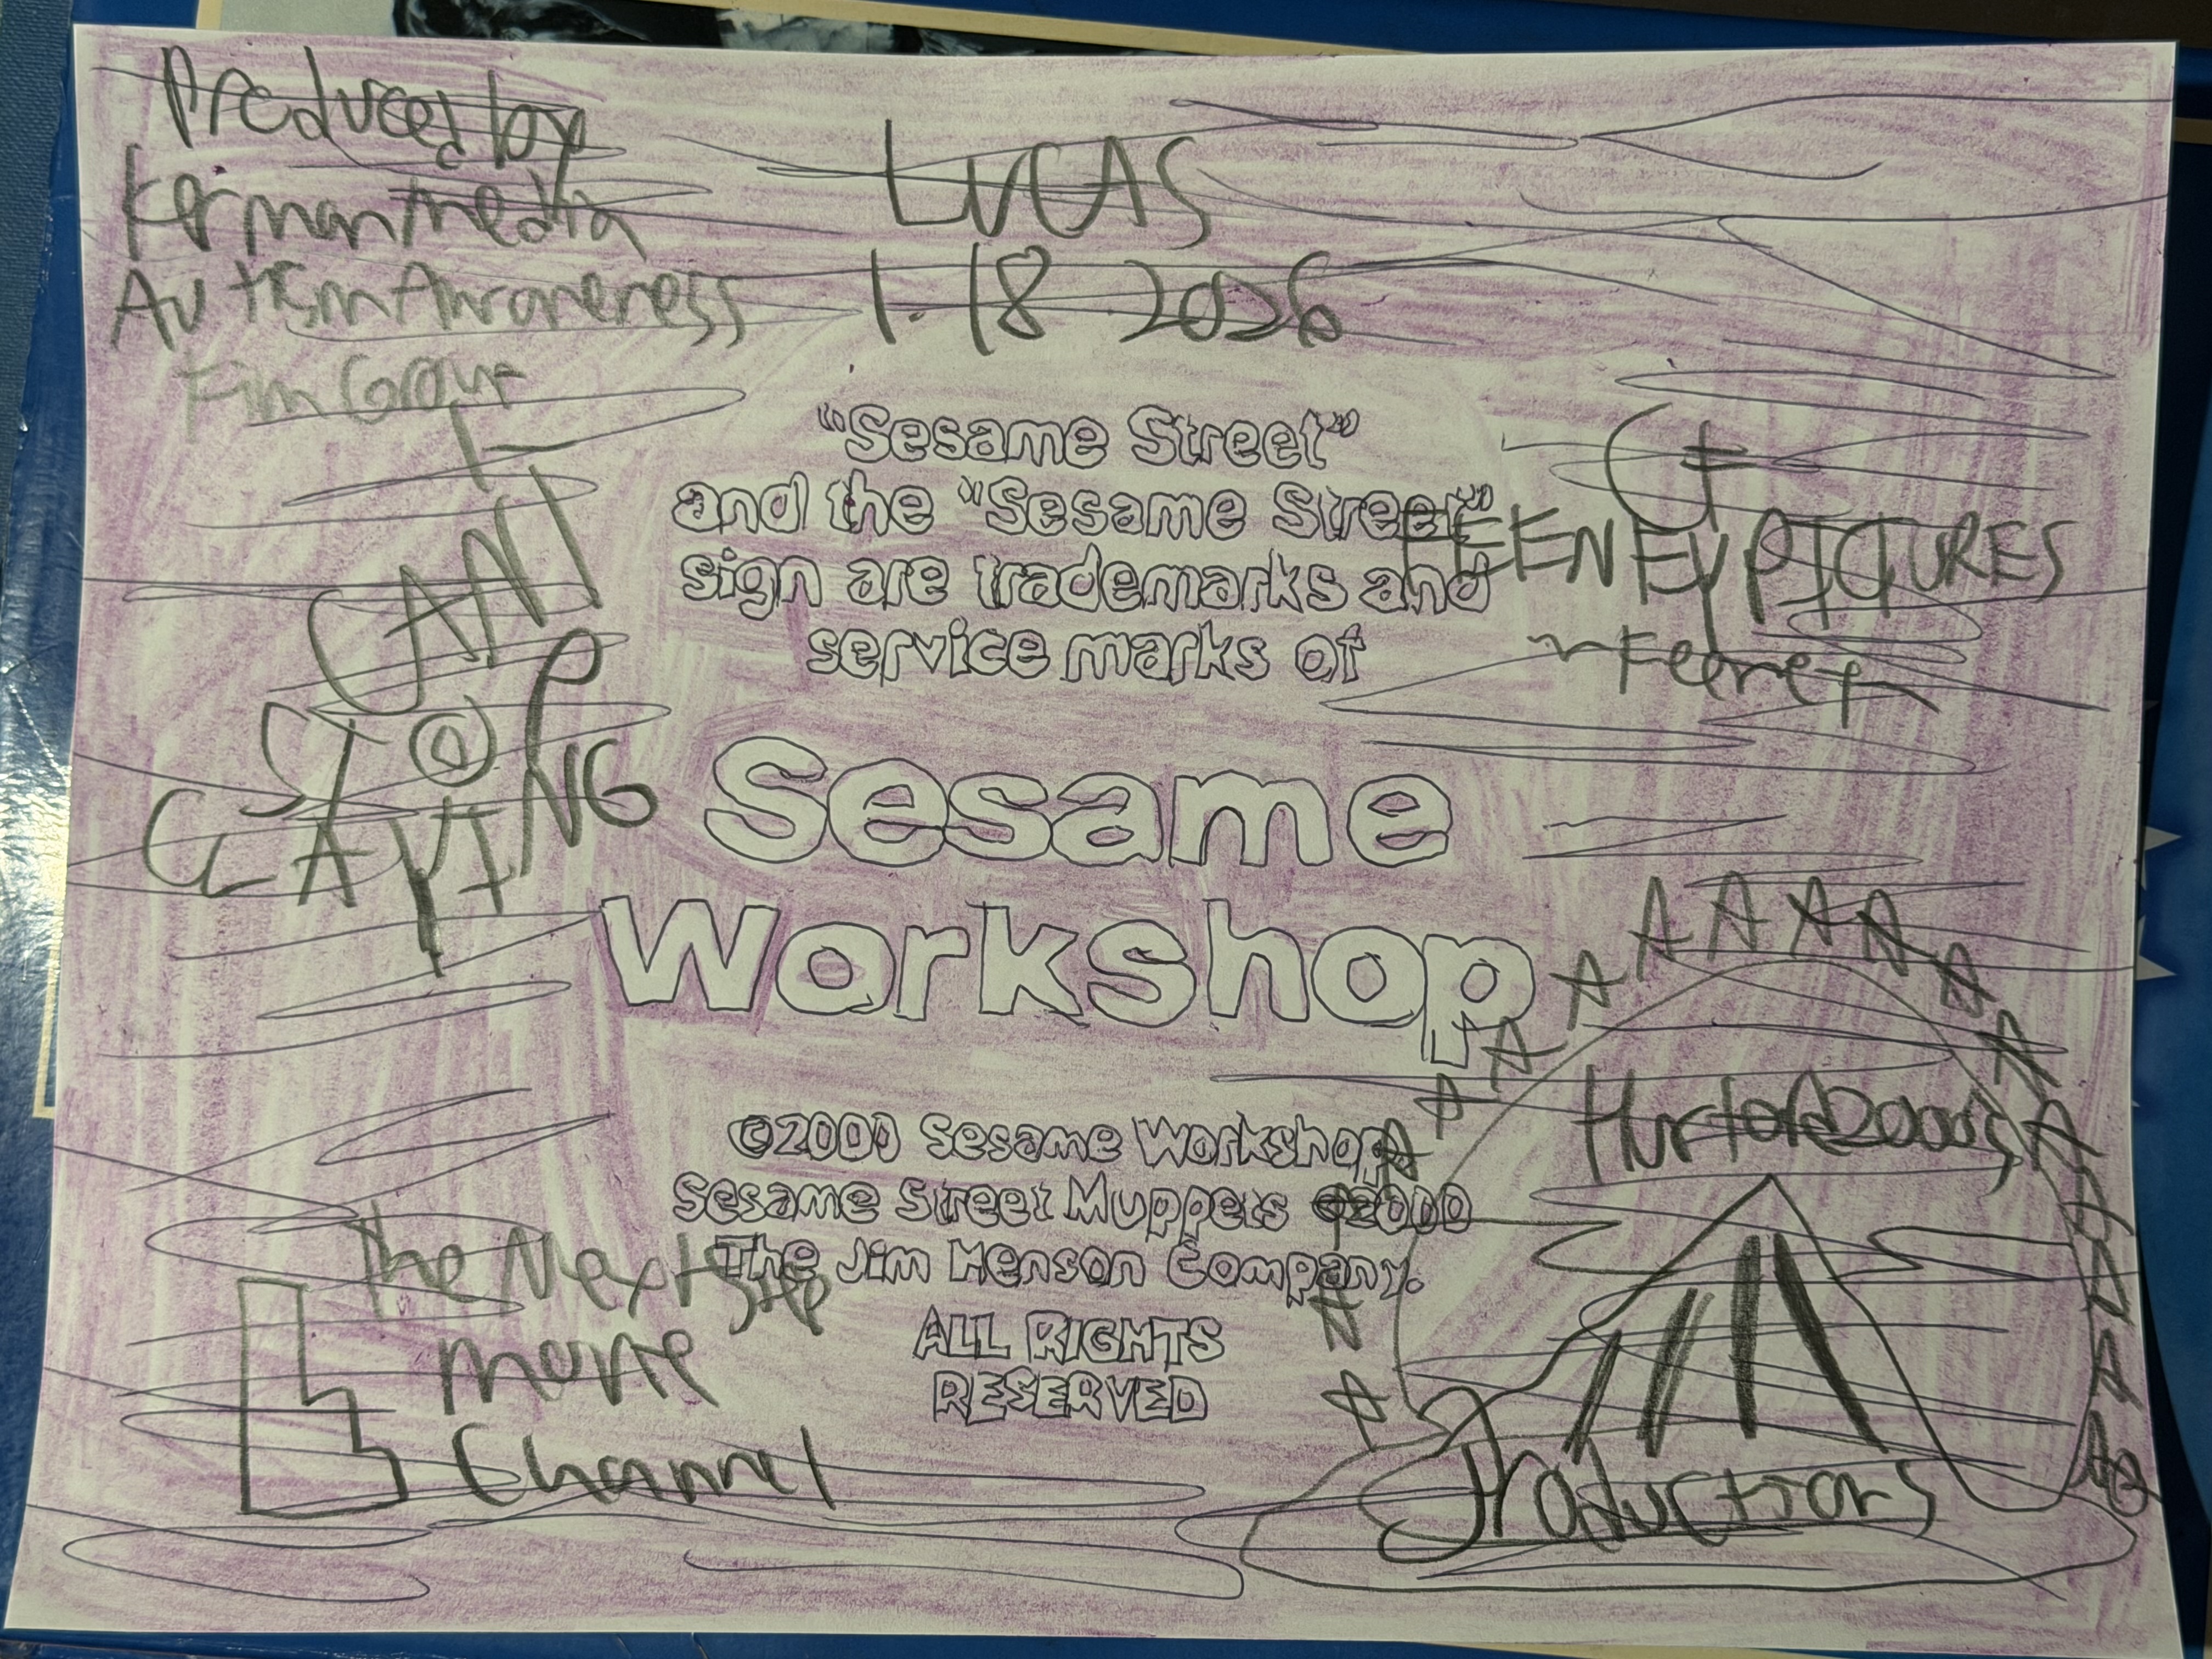 Produced by
Kerman media
Autism Awareness
Fim Group
LUCAS
1.18 2026
"Sesame Street"
and the "Sesame Street"
sign are trademarks and
service marks of
Sesame
Workshop
©2000 Sesame Workshop.
Sesame Street Muppets ©2000
The Jim Henson Company.
ALL RIGHTS
RESERVED
CANT
STOP
CLAYING
FEENEY PICTURES
The Next Step
movie
Channel
Productions